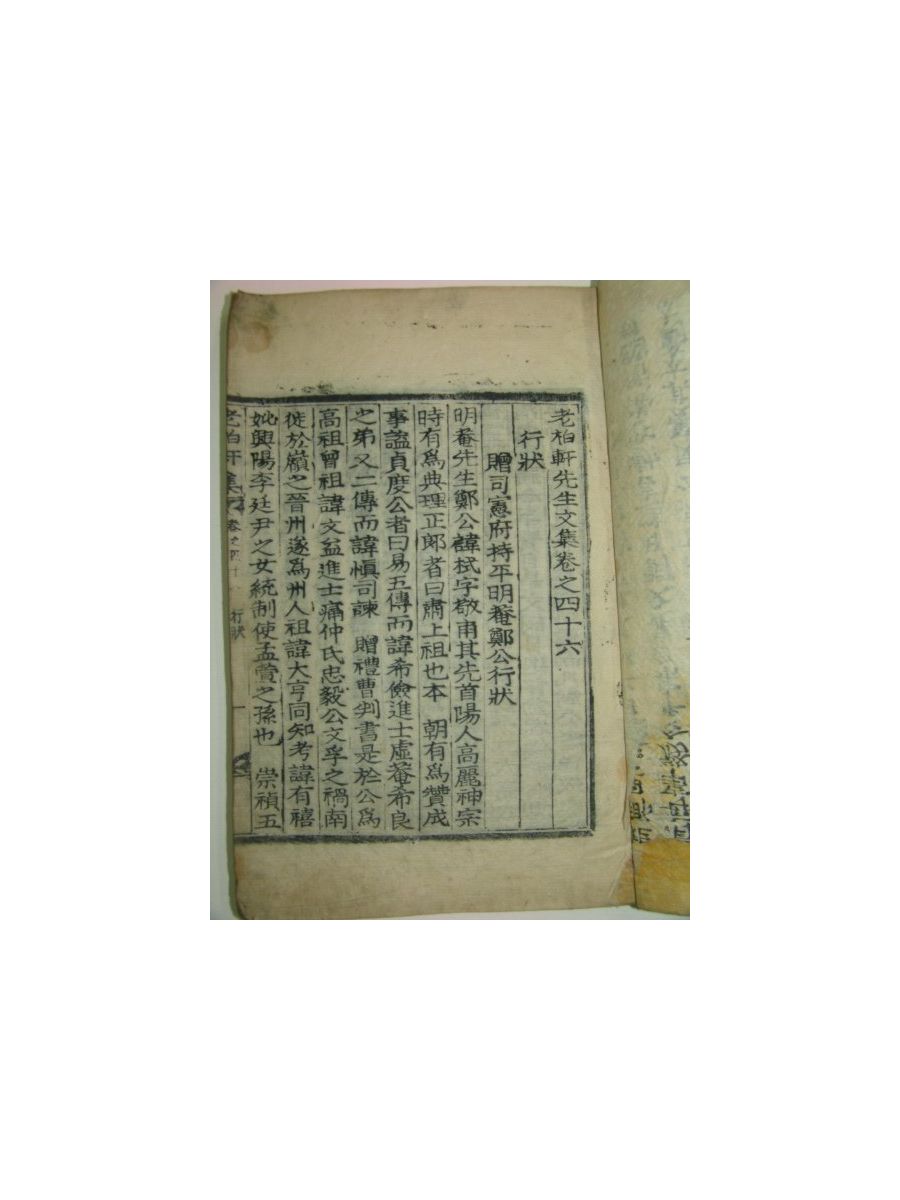 老柏軒先生文集卷之四十六
行狀
贈司憲府持平明菴鄭公行狀
明菴先生鄭公諱栻字敬甫其先首陽人高麗神宗
時有爲典理正郎者曰肅上祖也本 朝有爲贊成
事謚貞度公者曰易五傳而諱希儉進士虛菴希良
之弟又二傳而諱愼司諫 贈禮曹判書是於公爲
高祖曾祖諱文益進士痛仲氏忠毅公文孚之禍南
徙於嶺之晉州遂爲州人祖諱大亨同知考諱有禧
妣興陽李廷尹之女統制使孟萱之孫也 崇禎五
老柏軒集 卷之四十 行狀 一